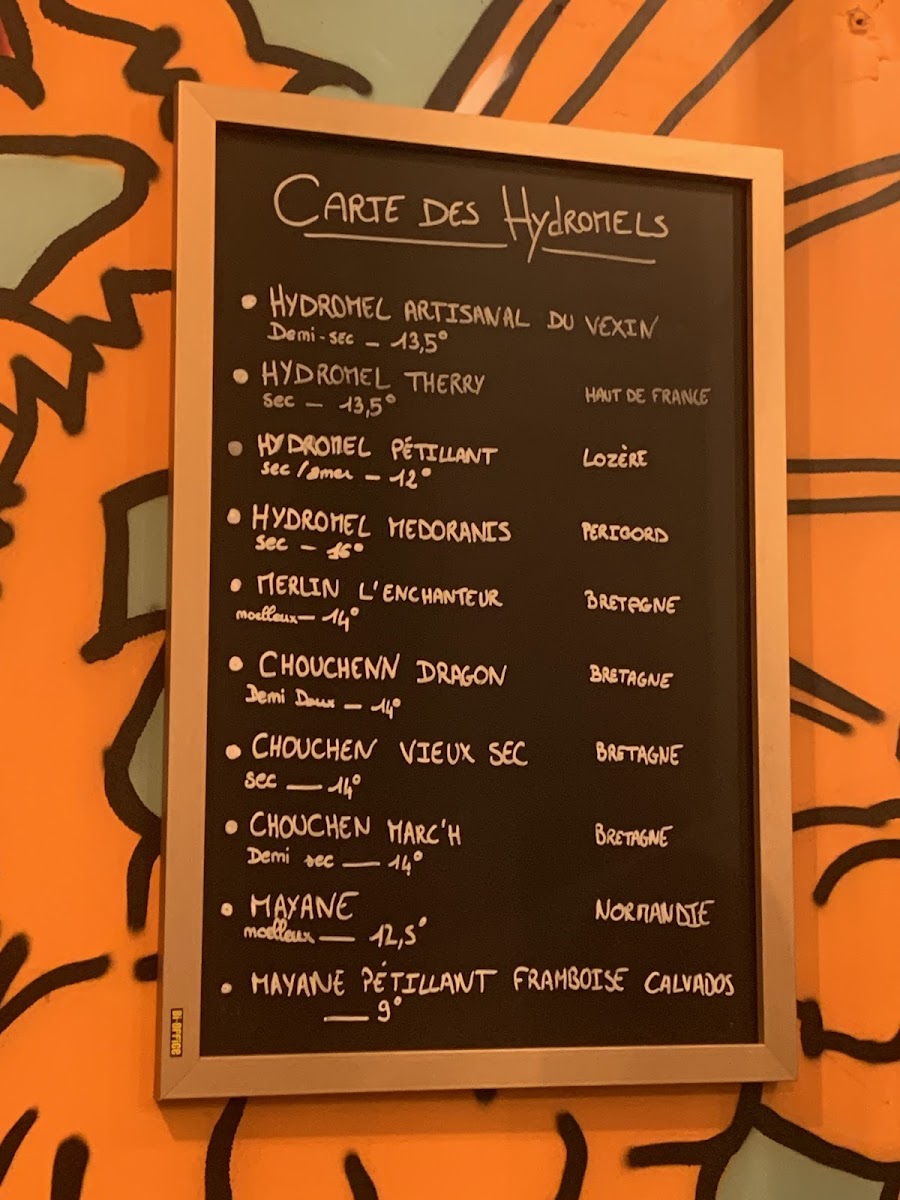 CARTE DES HydROMELS
• HYDROMEL ARTISANAL DU VEXIN
Demi-sec — 13,5°
• HYDROMEL THERRY HAUT DE FRANCE
sec — 13,5°
• HYDROMEL PÉTILLANT LOZÈRE
sec/amer — 12°
• HYDROMEL MEDORANIS PERIGORD
sec — 16°
• MERLIN L'ENCHANTEUR BRETAGNE
moelleux — 14°
• CHOUCHENN DRAGON BRETAGNE
Demi Doux — 14°
• CHOUCHEN VIEUX SEC BRETAGNE
sec — 14°
• CHOUCHEN MARC'H BRETAGNE
Demi sec — 14°
• MAYANE NORMANDIE
moelleux — 12,5°
• MAYANE PÉTILLANT FRAMBOISE CALVADOS
— 9°
BI-OFFICE